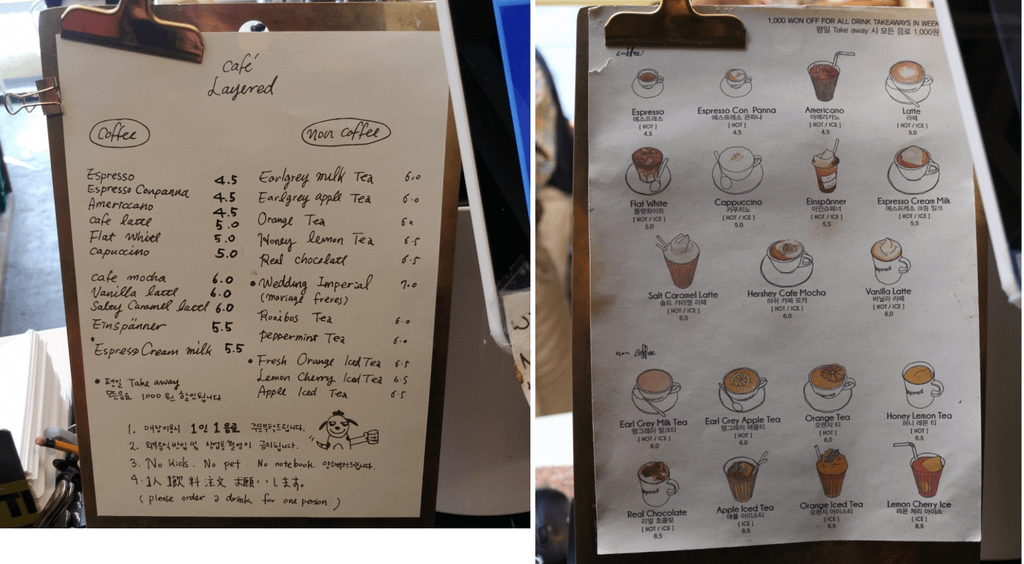 Café
Layered
Coffee
Espresso 4.5
Espresso Conpanna 4.5
Americcano 4.5
cafe latte 5.0
Flat white 5.0
Capuccino 5.0
cafe mocha 6.0
Vanilla latte 6.0
Saltey Caramel latte 6.0
Einspänner 5.5
Espresso Cream milk 5.5
• 평일 Take away
모든음료 1000원 할인됩니다
non coffee
Earlgrey milk Tea 6.0
Earlgrey apple Tea 6.0
Orange Tea
Honey lemon Tea 6.5
Real chocolate 6.5
• Wedding Imperial 7.0
(mariage frères)
Rooibos Tea 6.0
Peppermint Tea 6.0
• Fresh Orange Iced Tea 6.5
Lemon Cherry Iced Tea 6.5
Apple Iced Tea 6.5
1. 매장이용시 1인 1음료 주문부탁드립니다.
2. 외부음식반입 및 상업용촬영이 금지됩니다.
3. No Kids. No pet. No notebook. 양해부탁드립니다.
4. 1人 1飲料 注文 お願いします。
(please order a drink for one person)
1,000 WON OFF FOR ALL DRINK TAKEAWAYS IN WEEK
평일 Take away 시 모든 음료 1,000원
coffee
Espresso
에스프레소
[ HOT ]
4,5
Espresso Con Panna
에스프레소 콘파나
[ HOT ]
4,5
Americano
아메리카노
[ HOT / ICE ]
4,5
Latte
라떼
[ HOT / ICE ]
5,0
Flat White
플랫화이트
[ HOT / ICE ]
5,0
Cappuccino
카푸치노
[ HOT / ICE ]
5,0
Einspänner
아인슈페너
[ HOT / ICE ]
5,5
Espresso Cream Milk
에스프레소 크림 밀크
[ HOT / ICE ]
5,5
Salt Caramel Latte
솔트 카라멜 라떼
[ HOT / ICE ]
6,0
Hershey Cafe Mocha
허쉬 카페 모카
[ HOT / ICE ]
6,0
Vanilla Latte
바닐라 라떼
[ HOT / ICE ]
6,0
non coffee
Earl Grey Milk Tea
얼그레이 밀크티
[ HOT / ICE ]
6,0
Earl Grey Apple Tea
얼그레이 애플티
[ HOT ]
6,0
Orange Tea
오렌지 티
[ HOT ]
6,0
Honey Lemon Tea
허니 레몬 티
[ HOT ]
6,5
Real Chocolate
리얼 초콜릿
[ HOT / ICE ]
6,5
Apple Iced Tea
애플 아이스티
[ ICE ]
6,5
Orange Iced Tea
오렌지 아이스티
[ ICE ]
6,5
Lemon Cherry Ice
레몬 체리 아이스
[ ICE ]
6,5